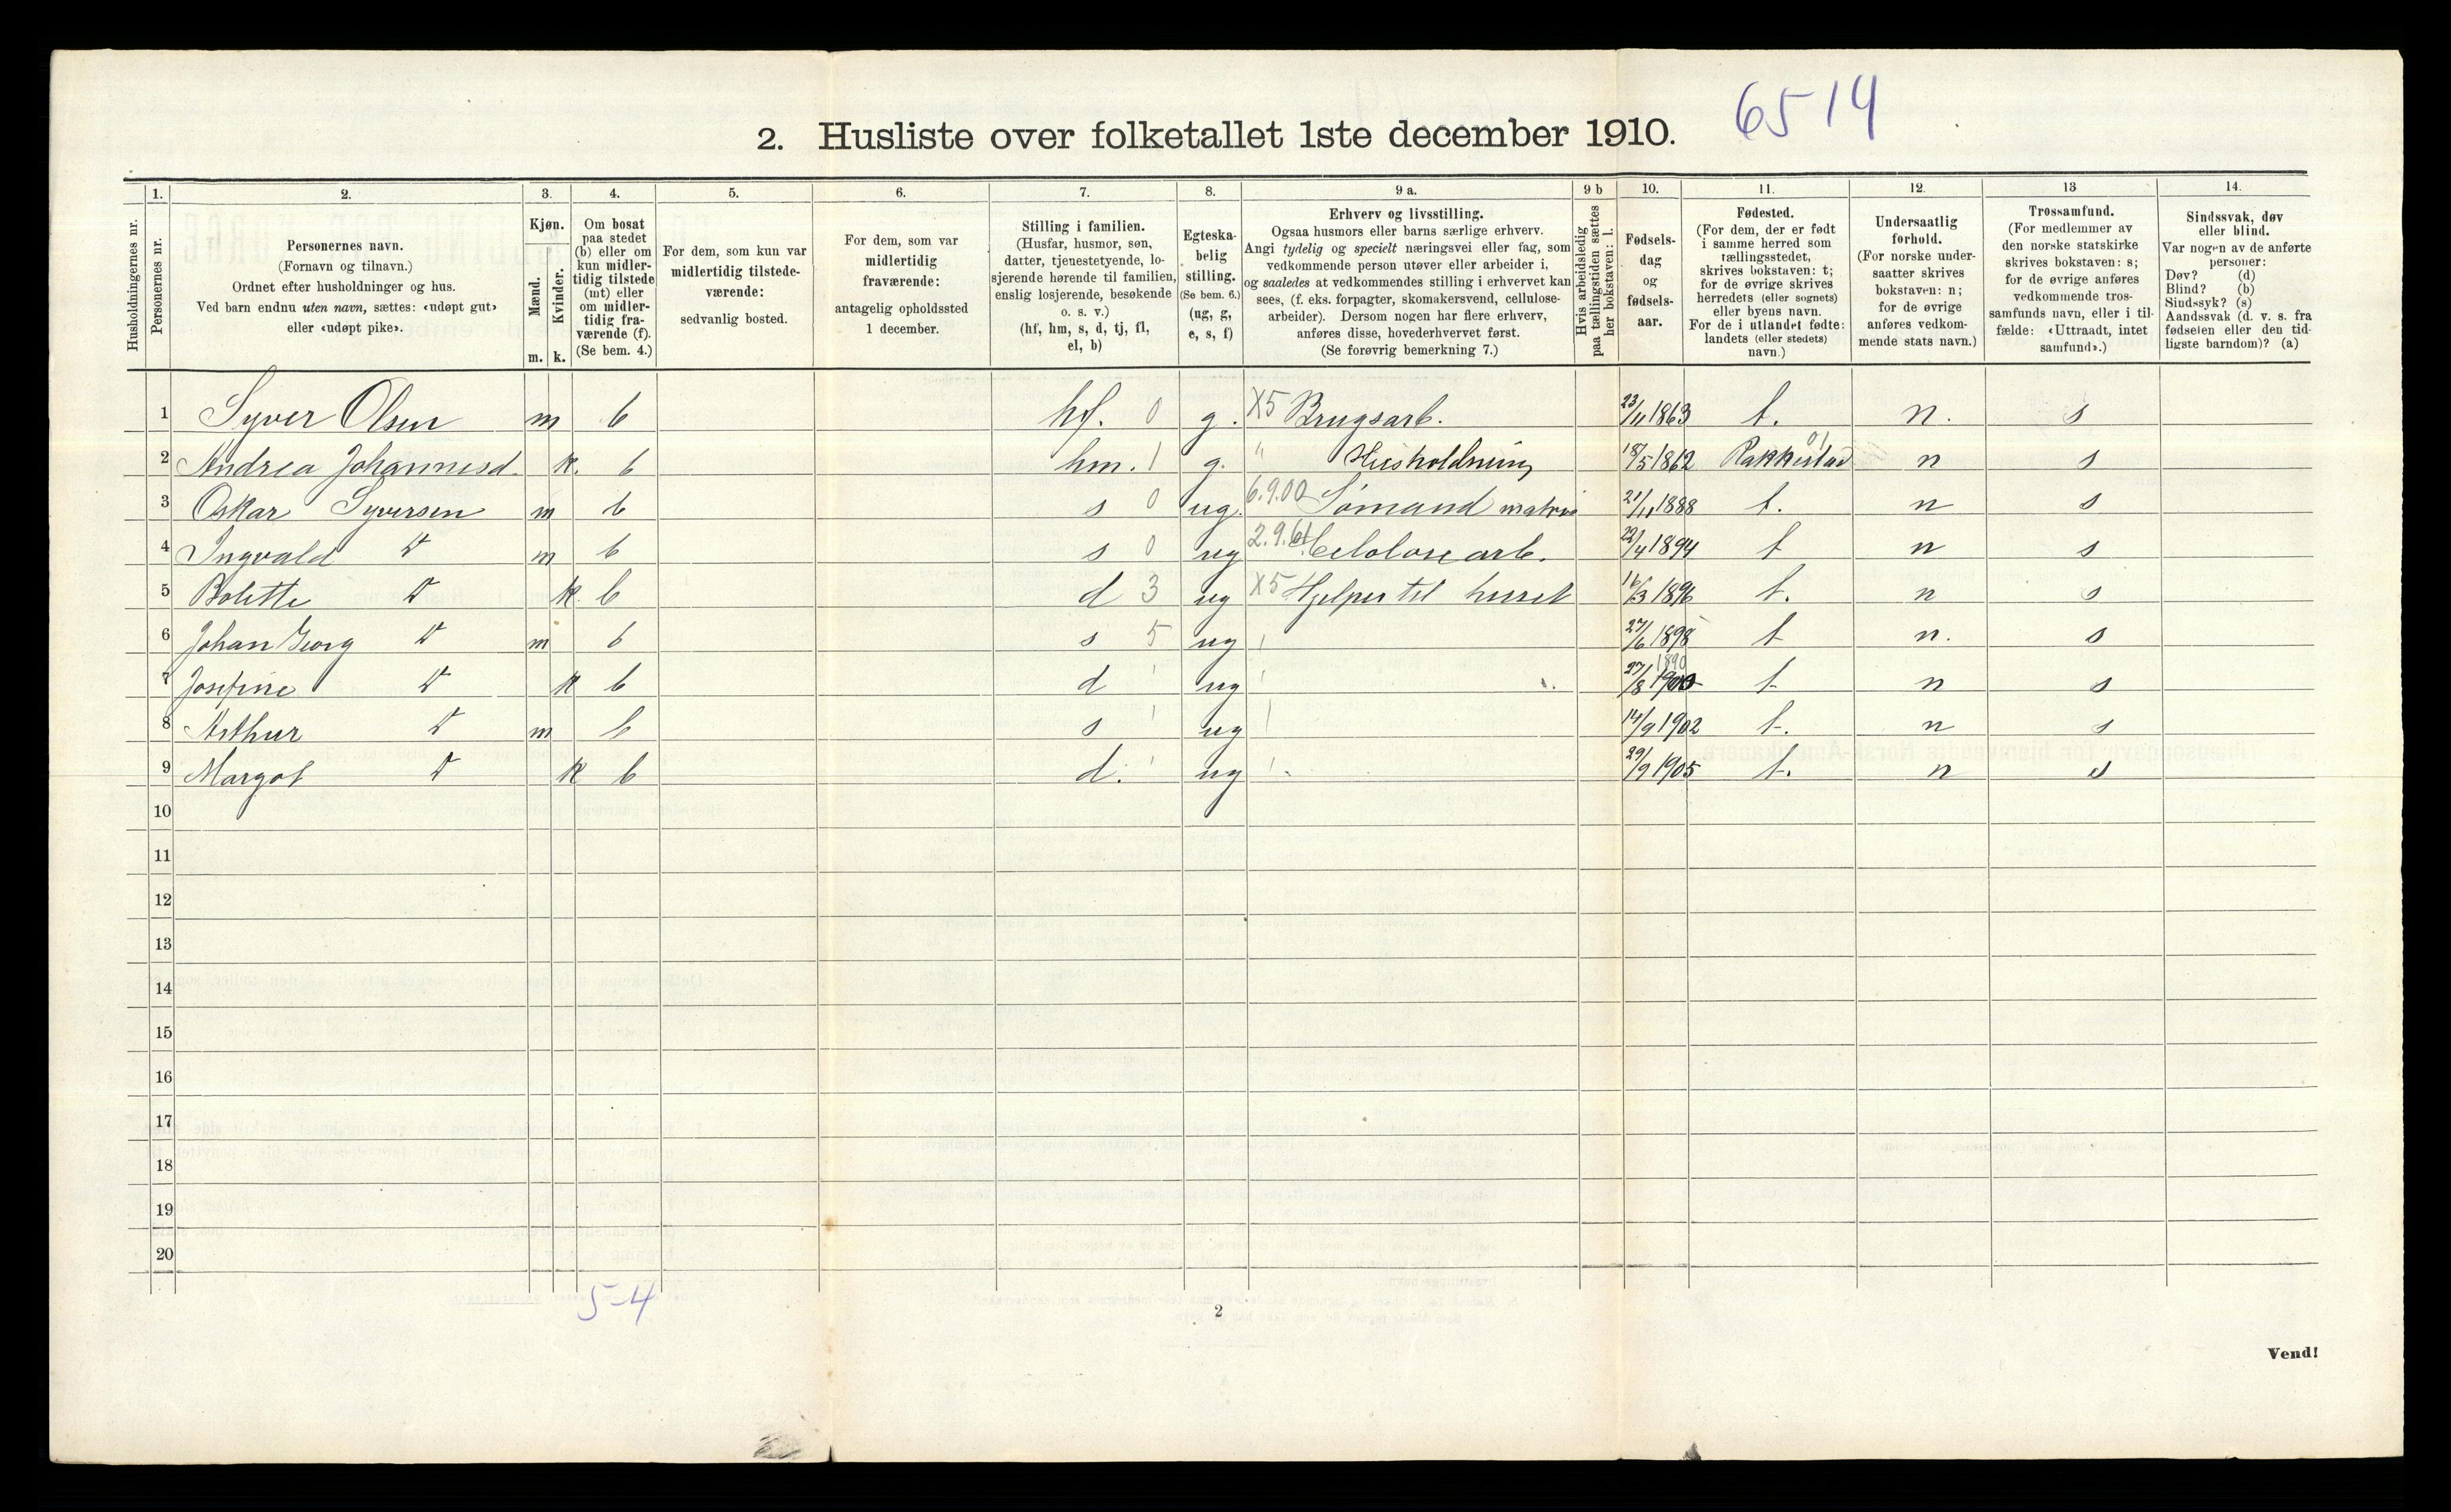 6514
2. Husliste over folketallet 1ste december 1910.
Husholdningernes nr.
1.
Personernes nr.
2.
Personernes navn.
(Fornavn og tilnavn.)
Ordnet efter husholdninger og hus.
Ved barn endnu uten navn, sættes: «udøpt gut»
eller «udøpt pike».
3.
Kjøn.
Mænd.
Kvinder.
m. k.
4.
Om bosat
paa stedet
(b) eller om
kun midler-
tidig tilstede
(mt) eller
om midler-
tidig fra-
værende (f).
(Se bem. 4.)
5.
For dem, som kun var
midlertidig tilstede-
værende:
sedvanlig bosted.
6.
For dem, som var
midlertidig
fraværende:
antagelig opholdssted
1 december.
7.
Stilling i familien.
(Husfar, husmor, søn,
datter, tjenestetyende, lo-
sjerende hørende til familien,
enslig losjerende, besøkende
o. s. v.)
(hf, hm, s, d, tj, fl,
el, b)
8.
Egteska-
belig
stilling.
(Se bem. 6.)
(ug, g,
e, s, f)
9 a.
Erhverv og livsstilling.
Ogsaa husmors eller barns særlige erhverv.
Angi tydelig og specielt næringsvei eller fag, som
vedkommende person utøver eller arbeider i,
og saaledes at vedkommendes stilling i erhvervet kan
sees, (f. eks. forpagter, skomakersvend, cellulose-
arbeider). Dersom nogen har flere erhverv,
anføres disse, hovederhvervet først.
(Se forøvrig bemerkning 7.)
9 b
Hvis arbeidsledig
paa tællingstiden sættes
her bokstaven: l.
10.
Fødsels-
dag
og
fødsels-
aar.
11.
Fødested.
(For dem, der er født
i samme herred som
tællingsstedet,
skrives bokstaven: t;
for de øvrige skrives
herredets (eller sognets)
eller byens navn.
For de i utlandet fødte:
landets (eller stedets)
navn.)
12.
Undersaatlig
forhold.
(For norske under-
saatter skrives
bokstaven: n;
for de øvrige
anføres vedkom-
mende stats navn.)
13
Trossamfund.
(For medlemmer av
den norske statskirke
skrives bokstaven: s;
for de øvrige anføres
vedkommende tros-
samfunds navn, eller i til-
fælde: «Uttraadt, intet
samfund».)
14.
Sindssvak, døv
eller blind.
Var nogen av de anførte
personer:
Døv? (d)
Blind? (b)
Sindssyk? (s)
Aandssvak (d. v. s. fra
fødselen eller den tid-
ligste barndom)? (a)
1 Syver Olsen m b hf. 0 g. X5 Brugsarb. 23/11 1863 t. n. s
2 Andrea Johannesd. k. b hm. 1 g. " Husholdning 18/5 1862 Rakkestad 01 n s
3 Oskar Syversen m b s 0 ug. 6.9.00 Sømand matros 21/11 1888 t. n s
4 Ingvald D m b s 0 ug 2.9.61 Celolose arb. 22/4 1894 t n s
5 Bolette D k. b d 3 ug X5 Hjelper til huset 16/3 1896 t. n s
6 Johan Georg D m b s 5 ug 27/6 1898 t n. s
7 Josefine D k b d ug 27/8 1900 1890 t n s
8 Arthur D m b s ug 14/9 1902 t. n s
9 Margot D k b d. ug 29/9 1905 t. n s
10
11
12
13
14
15
16
17
18
19
20
5-4
2
Vend!